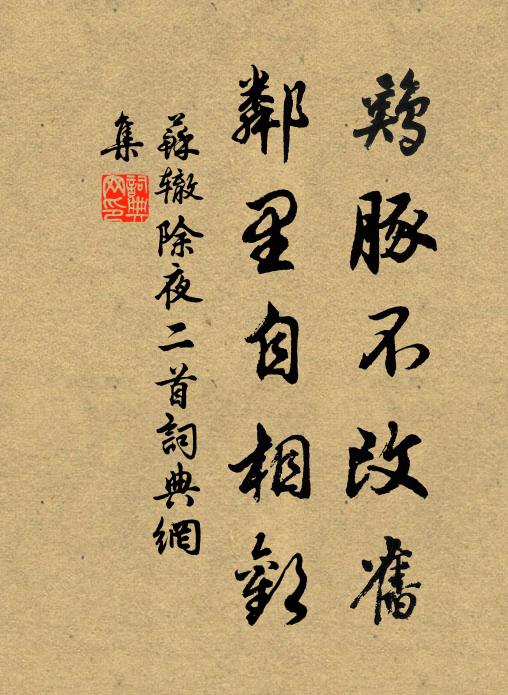 鷄豚不改舊
鄰里自相歡
蘇轍除夜二首詞典網
集
詞典网印